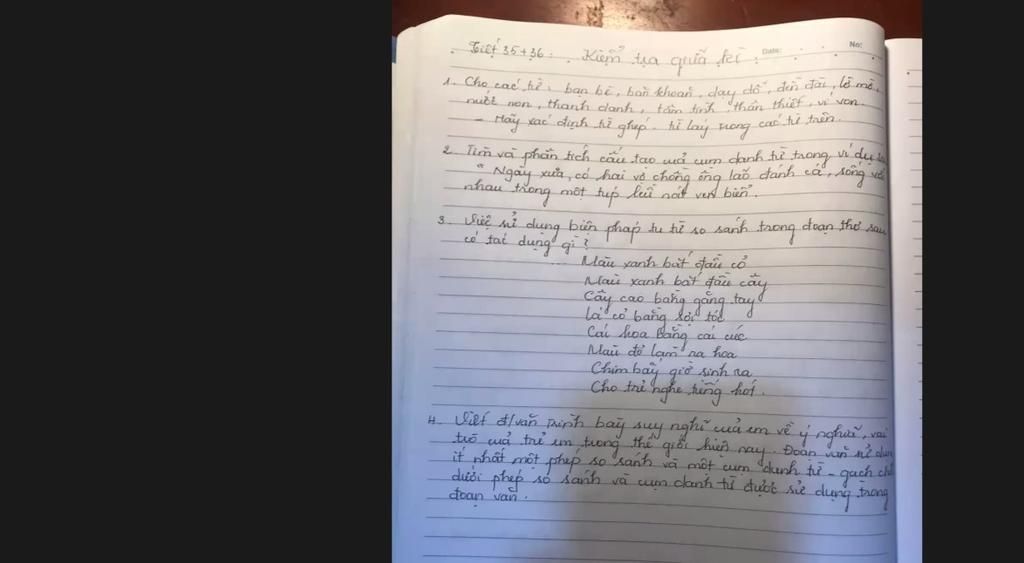 Tiết 35+36: Kiểm tra giữa kì
Date:
No:
1. Cho các từ: bạn bè, băn khoăn, dạy dỗ, đền đài, lờ mờ,
nước non, thanh danh, tâm tình, thân thiết, ví von.
- Hãy xác định từ ghép, từ láy trong các từ trên.
2. Tìm và phân tích cấu tạo của cụm danh từ trong ví dụ sau
"Ngày xưa, có hai vợ chồng ông lão đánh cá, sống với
nhau trong một túp lều nát ven biển.
3. Việc sử dụng biện pháp tu từ so sánh trong đoạn thơ sau
có tác dụng gì?
Màu xanh bắt đầu cỏ
Màu xanh bắt đầu cây
Cây cao bằng gang tay
Lá cỏ bằng sợi tóc
Cái hoa bằng cái cúc
Màu đỏ làm ra hoa
Chim bấy giờ sinh ra
Cho trẻ nghe tiếng hót.
4. Viết đ/văn trình bày suy nghĩ của em về ý nghĩa, vai
trò của trẻ em trong thế giới hiện nay. Đoạn văn sử dụng
ít nhất một phép so sánh và một cụm danh từ - gạch chân
dưới phép so sánh và cụm danh từ được sử dụng trong
đoạn văn.